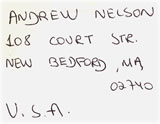 ANDREW NELSON
108 COURT STR.
NEW BEDFORD, MA
02740
U.S.A.